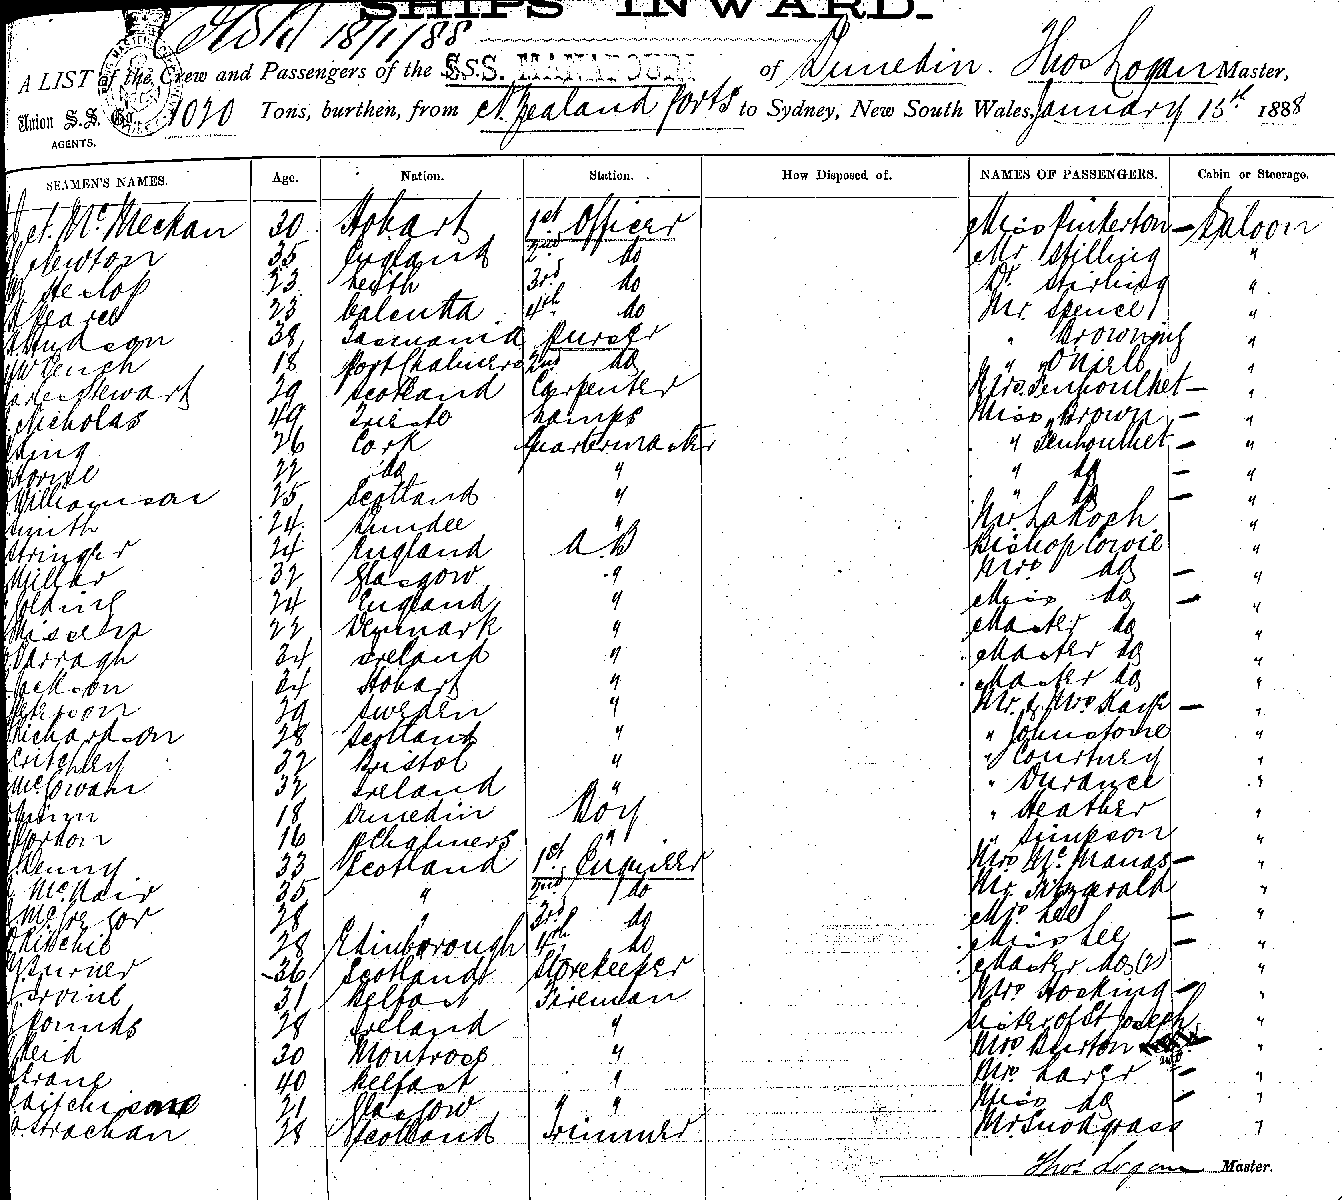 SHIPS INWARD.
18/1/88
A LIST of the Crew and Passengers of the S.S. MANAPOURI of Dunedin. Thos Logan Master,
Union S.S. Co. 1020 Tons, burthen, from N. Zealand Ports to Sydney, New South Wales, January 15th 1888
AGENTS.
SEAMEN'S NAMES. Age. Nation. Station. How Disposed of. NAMES OF PASSENGERS. Cabin or Steerage.
Mc Meckan 30 Hobart 1st Officer Miss Pinkerton — Saloon
Newton 35 England 2nd do Mr Stilling "
Heslop 23 Leith 3rd do Dr Stirling "
Pearce 23 Calcutta 4th do Mr. Spence "
Hudson 38 Tasmania Purser " Browning "
18 Port Chalmers 2nd do " "
Stewart 29 Scotland Carpenter Mrs. — "
Nicholas 49 Lamps Miss Brown — "
King 26 Cork Quartermaster " — "
22 do " " do — "
Williamson 25 Scotland " " do — "
Smith 24 Dundee " Mr "
Stringer 24 England A.B Bishop Cowie "
Millar 32 Glasgow " Mrs do — "
Golding 24 England " Miss do — "
22 Denmark " Master do "
Darragh 24 Ireland " Master do "
Jackson 24 Hobart " Master do "
Peterson 29 Sweden " Mr. & Mrs — "
Richardson 28 Scotland " " Johnstone "
Critchley 32 Bristol " " Courtney "
McGowan 32 Ireland " " Durance "
18 Dunedin Boy " Heather "
Gordon 16 Pt Chalmers " " Simpson "
Denny 33 Scotland 1st Engineer Mrs Mc Manas — "
McNair 35 " 2nd do Mr. Fitzgerald "
McGregor 28 " 3rd do Mrs. Lee — "
Ritchie 28 Edinborough 4th do Miss Lee — "
Turner 36 Scotland Storekeeper Master do (2) "
Irvine 31 Belfast Fireman Mrs Hocking — "
Pounds 28 Ireland " Sister of St Joseph "
Reid 30 Montrose " Mrs Burton "
Crane 40 Belfast " Mrs. — "
Aitchisone 21 Glasgow " " Miss do — "
Strachan 28 Scotland Trimmer Mr. Snodgrass "
Thos Logan Master.